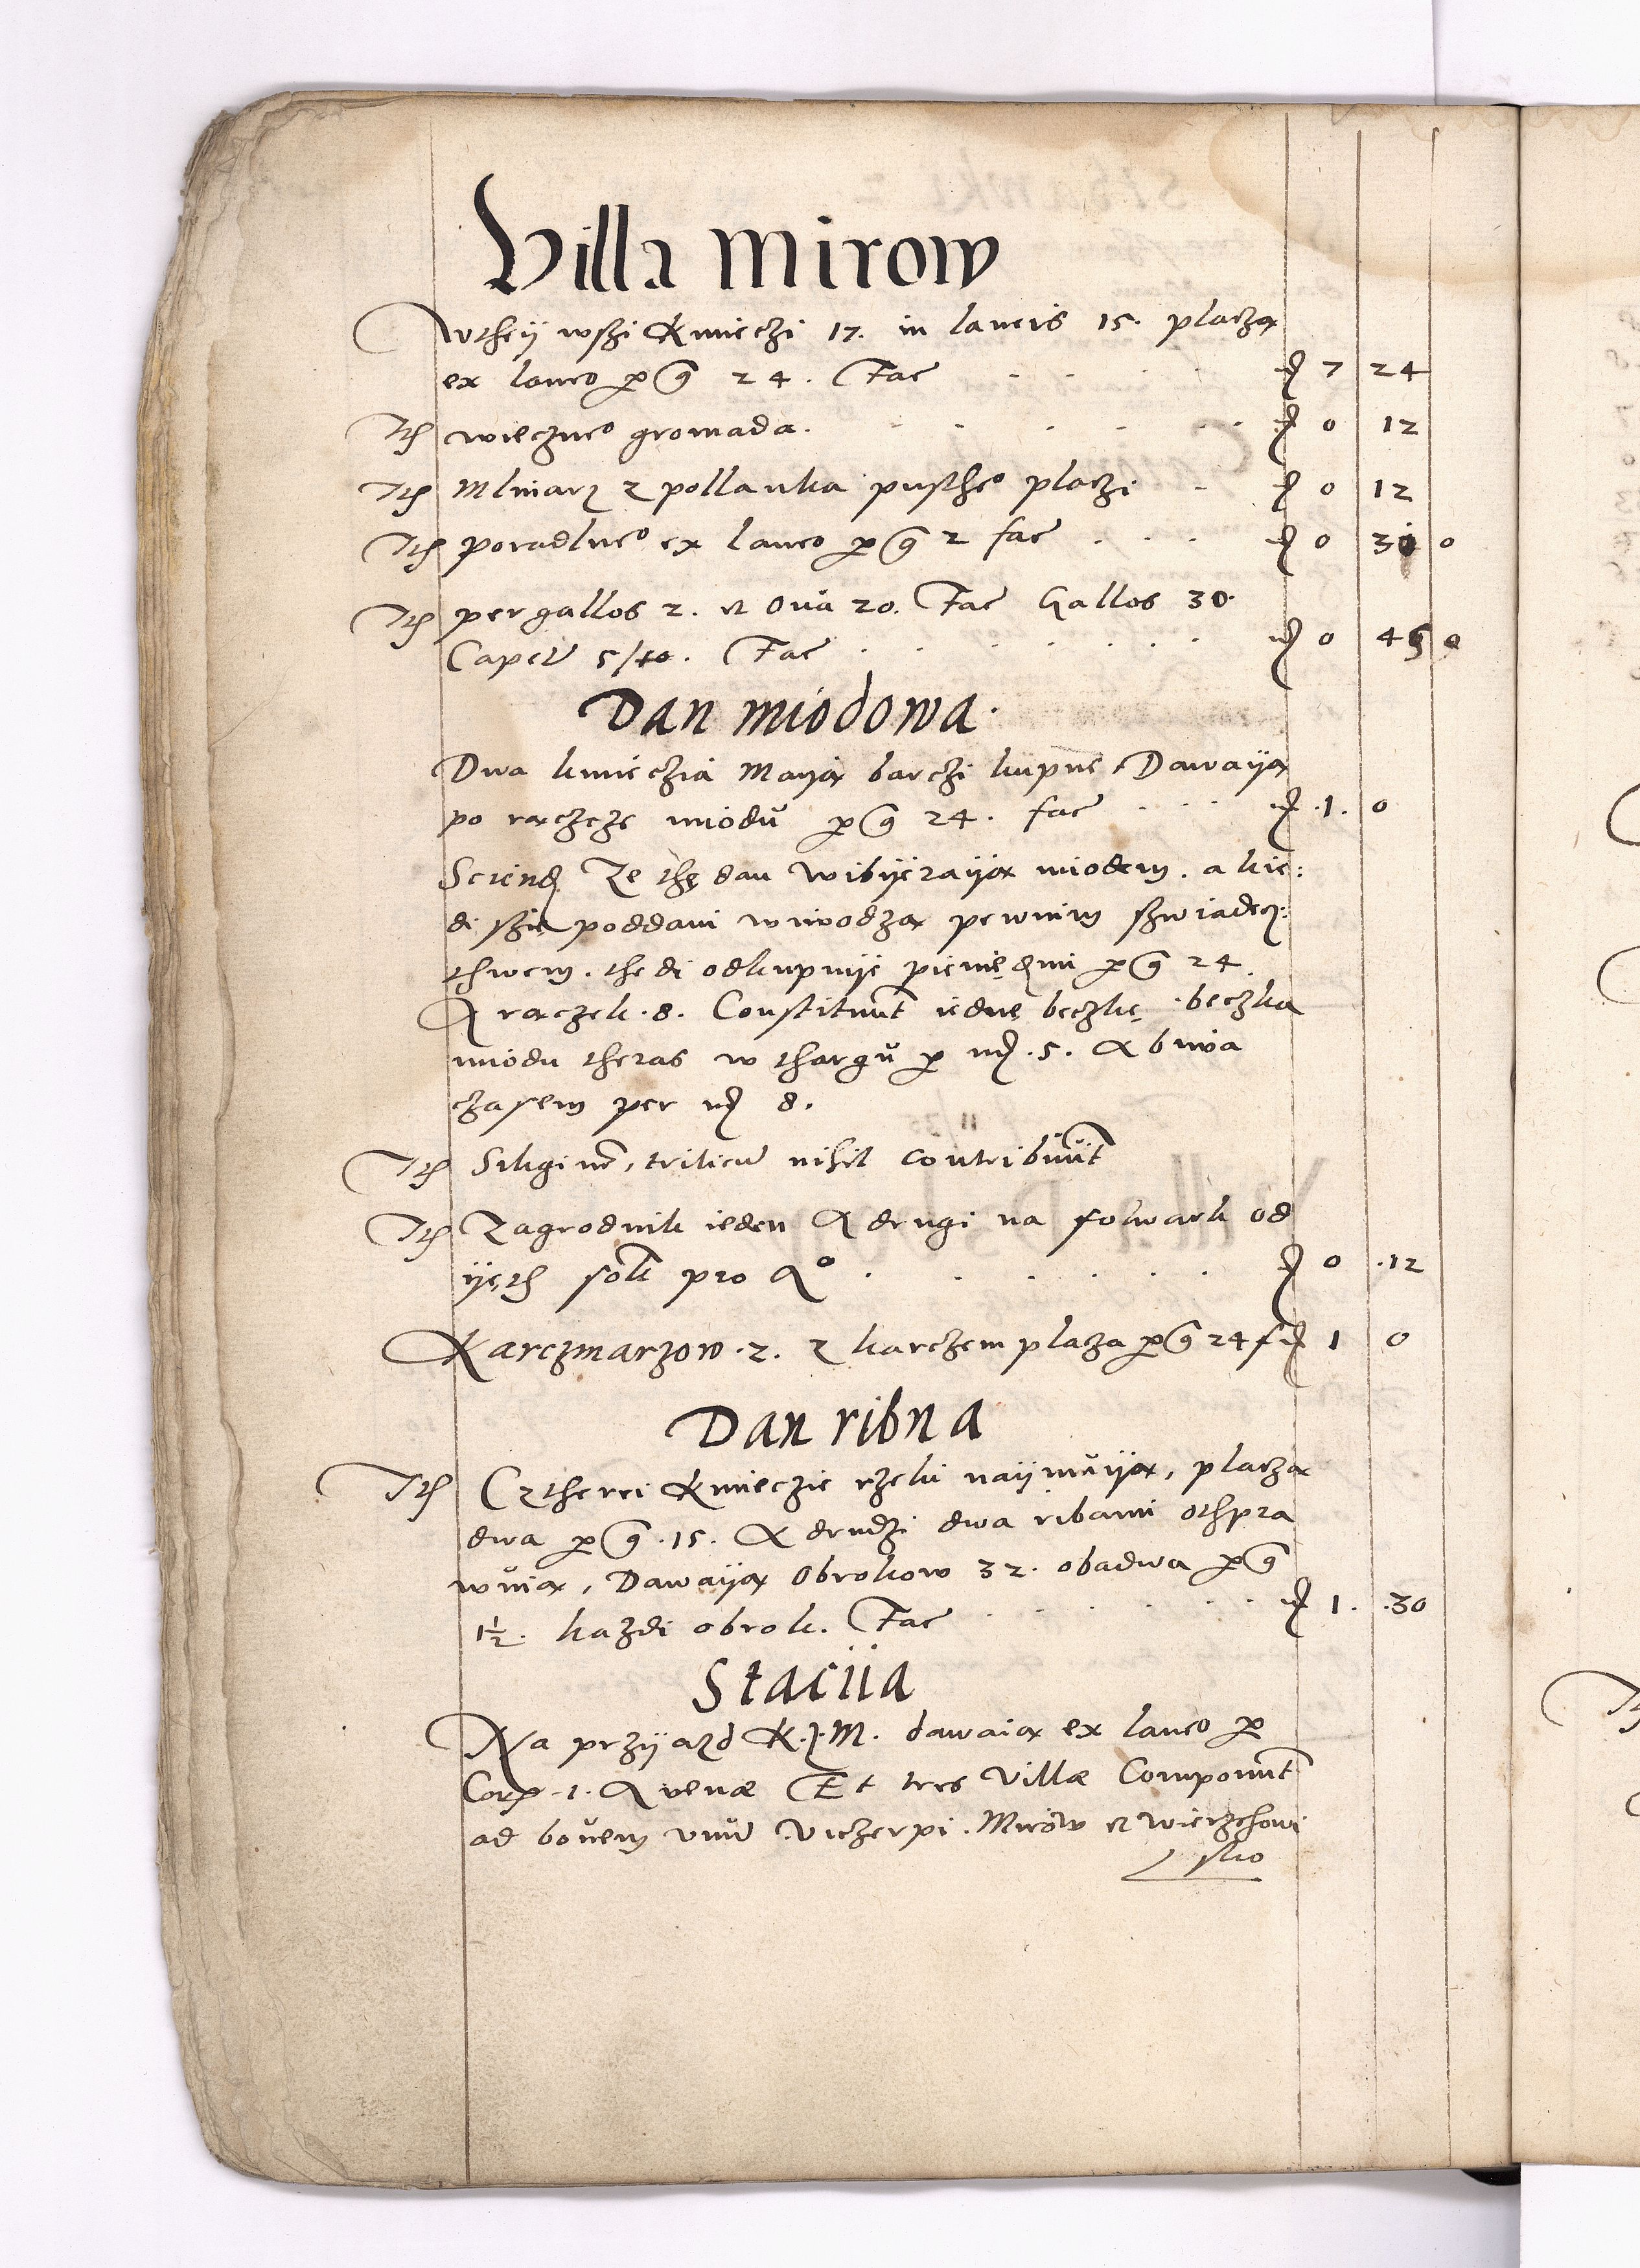 Villa Mirow
Wtheÿ wszi Kmieczi 17. in laneis 15. placzą
ex laneo p g 24. Fac m 7 24
Ith wieczne° gromada. m 0 12
Ith Mlinarz z pollanka pusthe° placzi m 0 12
Ith poradlne° ex laneo p g 2 fac m 0 30 0
Ith per gallos 2. et Oua 20. Fac Gallos 30
Caper 5/40. Fac m 0 45 0
Dan miodowa.
Dwa kmieczia Mayą barczi kupne, Dawayą
po rączcze miodu p g 24. fac m .1. 0
Sciend Ze thę dan wibÿerayą miodem. a kie:
di szię poddani wiwodzą pewnim szwiadecz:
thwem. thedi odkupuÿe pieniędzmi p g 24
A rączek .8. Constitunt iednę beczkę, beczka
miodu theras w thargu p m .5. A biwa
czasem per m 8.
Ith Siligine, triticu nihil contribuunt
Ith Zagrodnik ieden A drugi na folwark od
ÿęth solt pro A° m 0 .12
Karczmarzow .2. z karczem placza p g 24 f m 1 0
Dan ribna
Ith Cztherei Kmieczie rzeki naÿmuÿą, placzą
dwa p g .15. A drudzi dwa ribami othpra
wuią, Dawaÿą Obrokow 32. obadwa p g
1½. kazdi obrok. Fac m 1. .30
Staciia
Na przÿazd K.J.M. dawaią ex laneo p
Corz .1. Avenæ Et tres Villæ Componunt
ad bouem unu Viczerpi. Mirow et Wierzchowi
sko